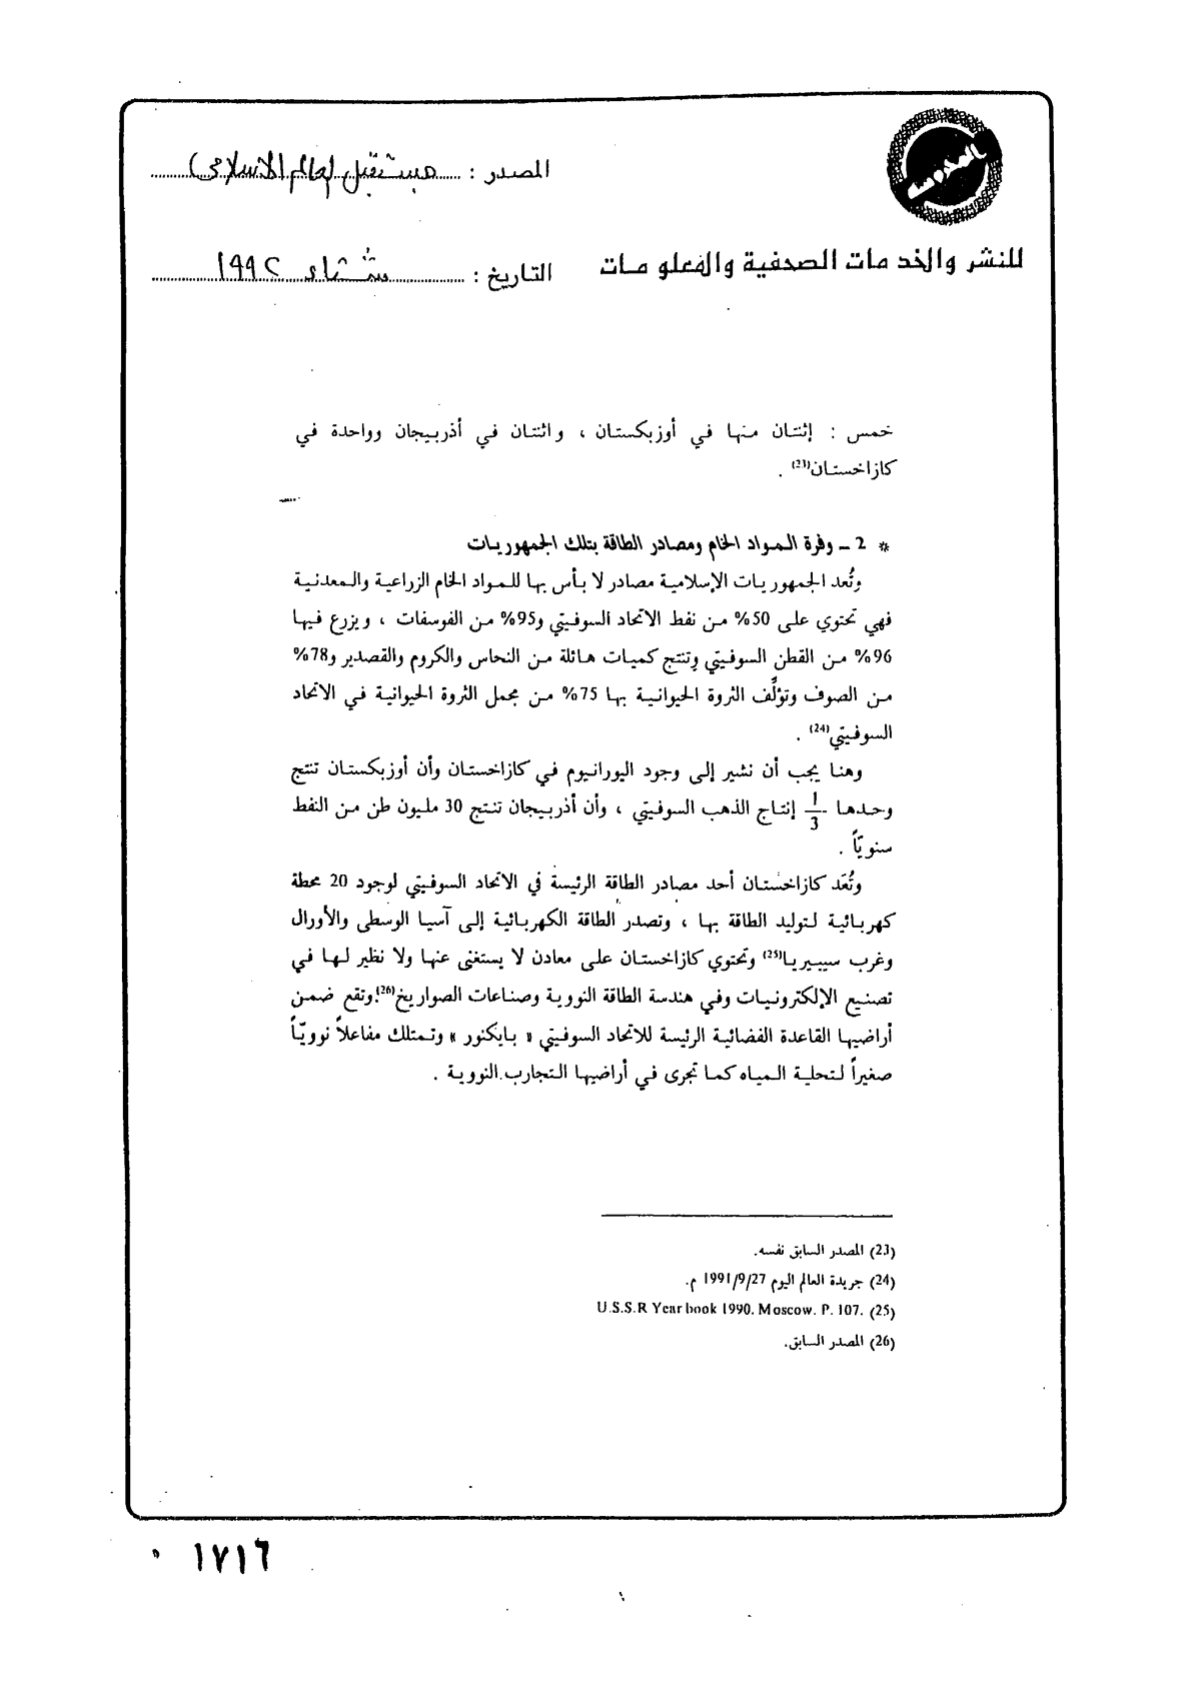 المصدر : مستقبل العالم الاسلامى
للنشر والخدمات الصحفية والمعلومات
التاريخ : شتاء ١٩٩٢
خمس : إثنتان منها في أوزبكستان ، واثنتان في أذربيجان وواحدة في
كازاخستان(23) .
* 2 ــ وفرة المواد الخام ومصادر الطاقة بتلك الجمهوريات
وتُعد الجمهوريات الإسلامية مصادر لا بأس بها للمواد الخام الزراعية والمعدنية
فهي تحتوي على 50% من نفط الاتحاد السوفيتي و95% من الفوسفات ، ويزرع فيها
96% من القطن السوفيتي وتنتج كميات هائلة من النحاس والكروم والقصدير و78%
من الصوف وتؤلِّف الثروة الحيوانية بها 75% من مجمل الثروة الحيوانية في الاتحاد
السوفيتي(24) .
وهنا يجب أن نشير إلى وجود اليورانيوم في كازاخستان وأن أوزبكستان تنتج
وحدها 1/3 إنتاج الذهب السوفيتي ، وأن أذربيجان تنتج 30 مليون طن من النفط
سنويّاً .
وتُعَد كازاخستان أحد مصادر الطاقة الرئيسة في الاتحاد السوفيتي لوجود 20 محطة
كهربائية لتوليد الطاقة بها ، وتصدر الطاقة الكهربائية إلى آسيا الوسطى والأورال
وغرب سيبيريا(25) وتحتوي كازاخستان على معادن لا يستغنى عنها ولا نظير لها في
تصنيع الإلكترونيات وفي هندسة الطاقة النووية وصناعات الصواريخ(26). وتقع ضمن
أراضيها القاعدة الفضائية الرئيسة للاتحاد السوفيتي « بايكنور » وتمتلك مفاعلاً نوويّاً
صغيراً لتحلية المياه كما تجرى في أراضيها التجارب النووية .
(23) المصدر السابق نفسه.
(24) جريدة العالم اليوم 1991/9/27 م.
(25) U.S.S.R Year book 1990. Moscow. P. 107.
(26) المصدر السابق.
١٧١٦